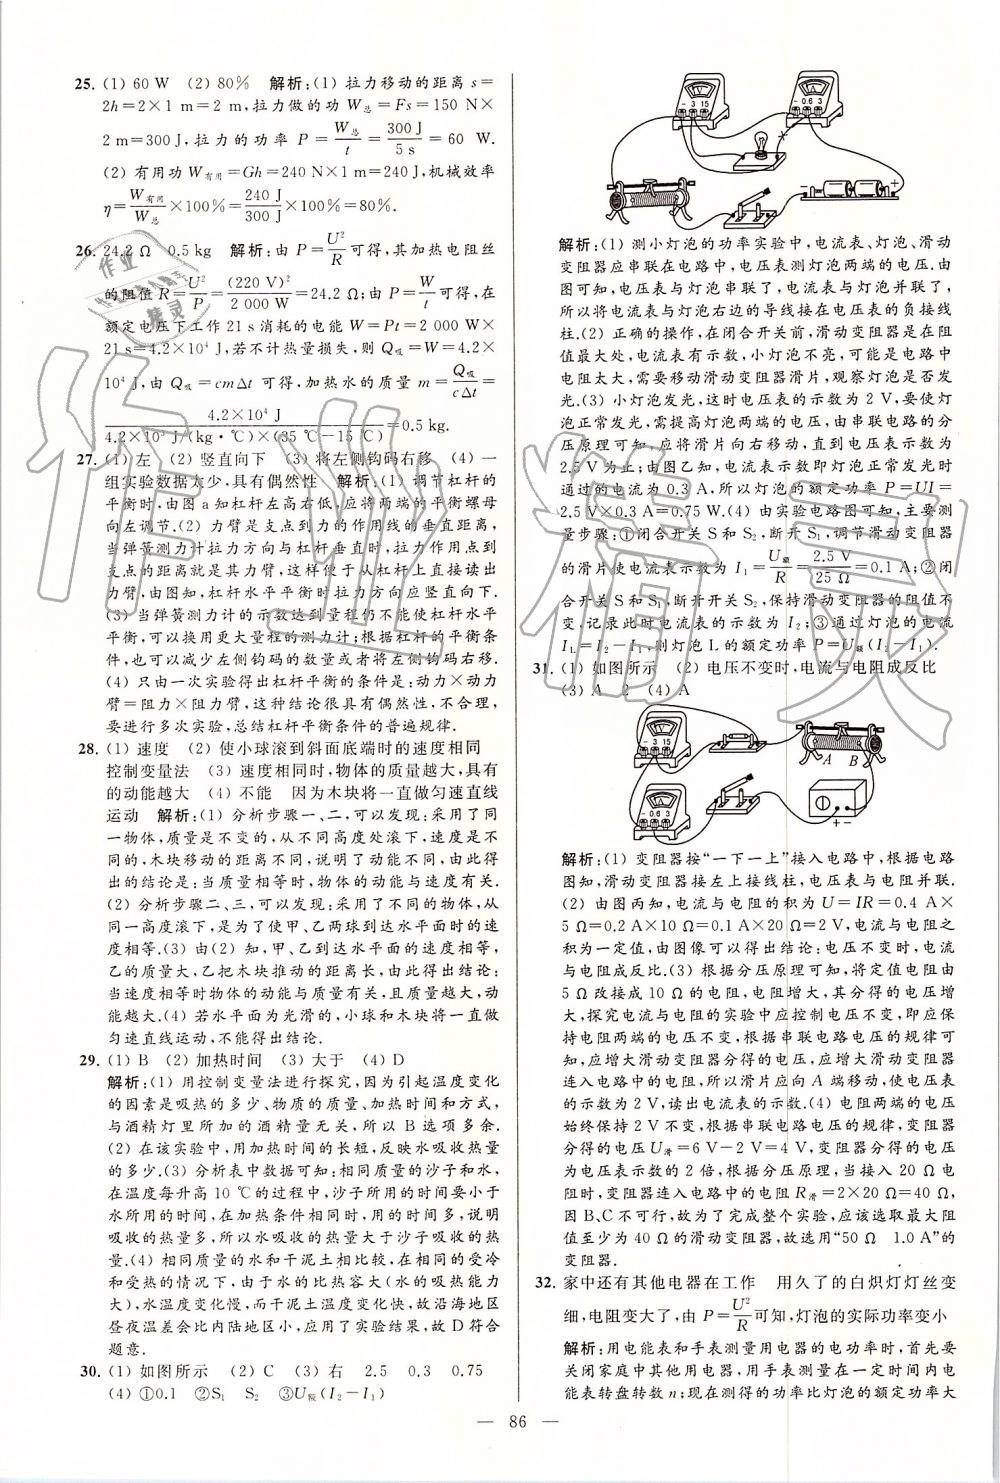 25. (1) 60 W (2) 80% 解析:(1) 拉力移动的距离 s=
2h=2×1 m=2 m,拉力做的功 W总=Fs=150 N×
2 m=300 J,拉力的功率 P=W总/t=300 J/5 s=60 W.
(2) 有用功 W有用=Gh=240 N×1 m=240 J,机械效率
η=W有用/W总×100%=240 J/300 J×100%=80%.
26. 24.2 Ω 0.5 kg 解析:由 P=U²/R可得,其加热电阻丝
的阻值 R=U²/P=(220 V)²/2 000 W=24.2 Ω;由 P=W/t可得,在
额定电压下工作 21 s消耗的电能 W=Pt=2 000 W×
21 s=4.2×10⁴ J,若不计热量损失,则 Q吸=W=4.2×
10⁴ J,由 Q吸=cmΔt 可得,加热水的质量 m=Q吸/cΔt=
4.2×10⁴ J/4.2×10³ J/(kg·℃)×(35 ℃-15 ℃)=0.5 kg.
27. (1) 左 (2) 竖直向下 (3) 将左侧钩码右移 (4) 一
组实验数据太少,具有偶然性 解析:(1) 调节杠杆的
平衡时,由图 a知杠杆左高右低,应将两端的平衡螺母
向左调节.(2) 力臂是支点到力的作用线的垂直距离,
当弹簧测力计拉力方向与杠杆垂直时,拉力作用点到
支点的距离就是其力臂,这样便于从杠杆上直接读出
力臂,由图知,杠杆水平平衡时拉力方向应竖直向下.
(3) 当弹簧测力计的示数达到量程仍不能使杠杆水平
平衡,可以换用更大量程的测力计;根据杠杆的平衡条
件,也可以减少左侧钩码的数量或者将左侧钩码右移.
(4) 只由一次实验得出杠杆平衡的条件是:动力×动力
臂=阻力×阻力臂,这种结论很具有偶然性,不合理,
要进行多次实验,总结杠杆平衡条件的普遍规律.
28. (1) 速度 (2) 使小球滚到斜面底端时的速度相同
控制变量法 (3) 速度相同时,物体的质量越大,具有
的动能越大 (4) 不能 因为木块将一直做匀速直线
运动 解析:(1) 分析步骤一、二,可以发现:采用了同
一物体,质量是不变的,从不同高度处滚下,速度是不
同的,木块移动的距离不同,说明了动能不同,由此得
出的结论是:当质量相等时,物体的动能与速度有关.
(2) 分析步骤二、三,可以发现:采用了不同的物体,从
相同的高度滚下,是为了使甲、乙两球到达水平面时的速
度相等.(3) 由(2)知,甲、乙到达水平面的速度相等,
乙的质量大,乙把木块推动的距离长,由此得出结论:
当速度相等时物体的动能与质量有关,且质量越大,动
能越大.(4) 若水平面为光滑的,小球和木块将一直做
匀速直线运动,不能得出结论.
29. (1) B (2) 加热时间 (3) 大于 (4) D
解析:(1) 用控制变量法进行探究,因为引起温度变化
的因素是吸热的多少、物质的质量、加热时间和方式,
与酒精灯里所加的酒精量无关,所以 B 选项多余.
(2) 在该实验中,用加热时间的长短,反映水吸收热量
的多少.(3) 分析表中数据可知:相同质量的沙子和水,
在温度每升高 10 ℃的过程中,沙子所用的时间要小于
水所用的时间,在加热条件相同时,用的时间多,说明
吸收的热量多,所以水吸收的热量大于沙子吸收的热
量.(4) 相同质量的水和干泥土相比较,在相同的受冷
和受热的情况下,由于水的比热容大(水的吸热能力
大),水温度变化慢,而干泥土温度变化快,故沿海地区
昼夜温差会比内陆地区小,应用了实验结果,故 D 符合
题意.
30. (1) 如图所示 (2) C (3) 右 2.5 0.3 0.75
(4) ①0.1 ②S₁ S₂ ③U额(I₂-I₁)
V
- 3 15
A
- 0.6 3
×
- +
解析:(1) 测小灯泡的功率实验中,电流表、灯泡、滑动
变阻器应串联在电路中,电压表测灯泡两端的电压.由
图可知,电压表与灯泡串联了,电流表与灯泡并联了,
所以将电压表与灯泡右边的导线接在电压表的负接线
柱.(2) 正确的操作,在闭合开关前,滑动变阻器是在阻
值最大处,电流表有示数,小灯泡不亮,可能是电路中
电阻太大,需要移动滑动变阻器滑片,观察灯泡是否发
光.(3) 小灯泡发光,这时电压表的示数为 2 V,要使灯
泡正常发光,需提高灯泡两端的电压,由串联电路的分
压原理可知,应将滑片向右移动,直到电压表示数为
2.5 V为止;由图乙知,电流表示数即灯泡正常发光时
通过的电流为 0.3 A,所以灯泡的额定功率 P=UI=
2.5 V×0.3 A=0.75 W.(4) 由实验电路图可知,主要测
量步骤:①闭合开关 S和 S₂,断开 S₁,调节滑动变阻器
的滑片使电流表示数为 I₁=U额/R=2.5 V/25 Ω=0.1 A;②闭
合开关 S和S₁,断开开关 S₂,保持滑动变阻器的阻值不
变,记录此时电流表的示数为 I₂;③通过灯泡的电流
IL=I₂-I₁,则灯泡 L的额定功率 P=U额(I₂-I₁).
31. (1) 如图所示 (2) 电压不变时,电流与电阻成反比
(3) A 2 (4) A
V
- 3 15
A B
A
- 0.6 3
+ -
解析:(1) 变阻器按“一下一上”接入电路中,根据电路
图知,滑动变阻器接左上接线柱,电压表与电阻并联.
(2) 由图丙知,电流与电阻的积为 U=IR=0.4 A×
5 Ω=0.2 A×10 Ω=0.1 A×20 Ω=2 V,电流与电阻之
积为一定值,由图像可以得出结论:电压不变时,电流
与电阻成反比.(3) 根据分压原理可知,将定值电阻由
5 Ω改接成 10 Ω的电阻,电阻增大,其分得的电压增
大,探究电流与电阻的实验中应控制电压不变,即应保
持电阻两端的电压不变,根据串联电路电压的规律可
知,应增大滑动变阻器分得的电压,应增大滑动变阻器
连入电路中的电阻,所以滑片应向 A 端移动,使电压表
的示数为 2 V,读出电流表的示数.(4) 电阻两端的电压
始终保持 2 V不变,根据串联电路电压的规律,变阻器
分得的电压 U滑=6 V-2 V=4 V,变阻器分得的电压
为电压表示数的 2 倍,根据分压原理,当接入 20 Ω 电
阻时,变阻器连入电路中的电阻 R滑=2×20 Ω=40 Ω,
因 B、C 不可行,故为了完成整个实验,应该选取最大阻
值至少为 40 Ω的滑动变阻器,故选用“50 Ω 1.0 A”的
变阻器.
32. 家中还有其他电器在工作 用久了的白炽灯灯丝变
细,电阻变大了,由 P=U²/R可知,灯泡的实际功率变小
解析:用电能表和手表测量用电器的电功率时,首先要
关闭家庭中其他用电器,用手表测量在一定时间内电
能表转盘转数 n;现在测得的功率比灯泡的额定功率大
— 86 —
作业精灵
作业精灵